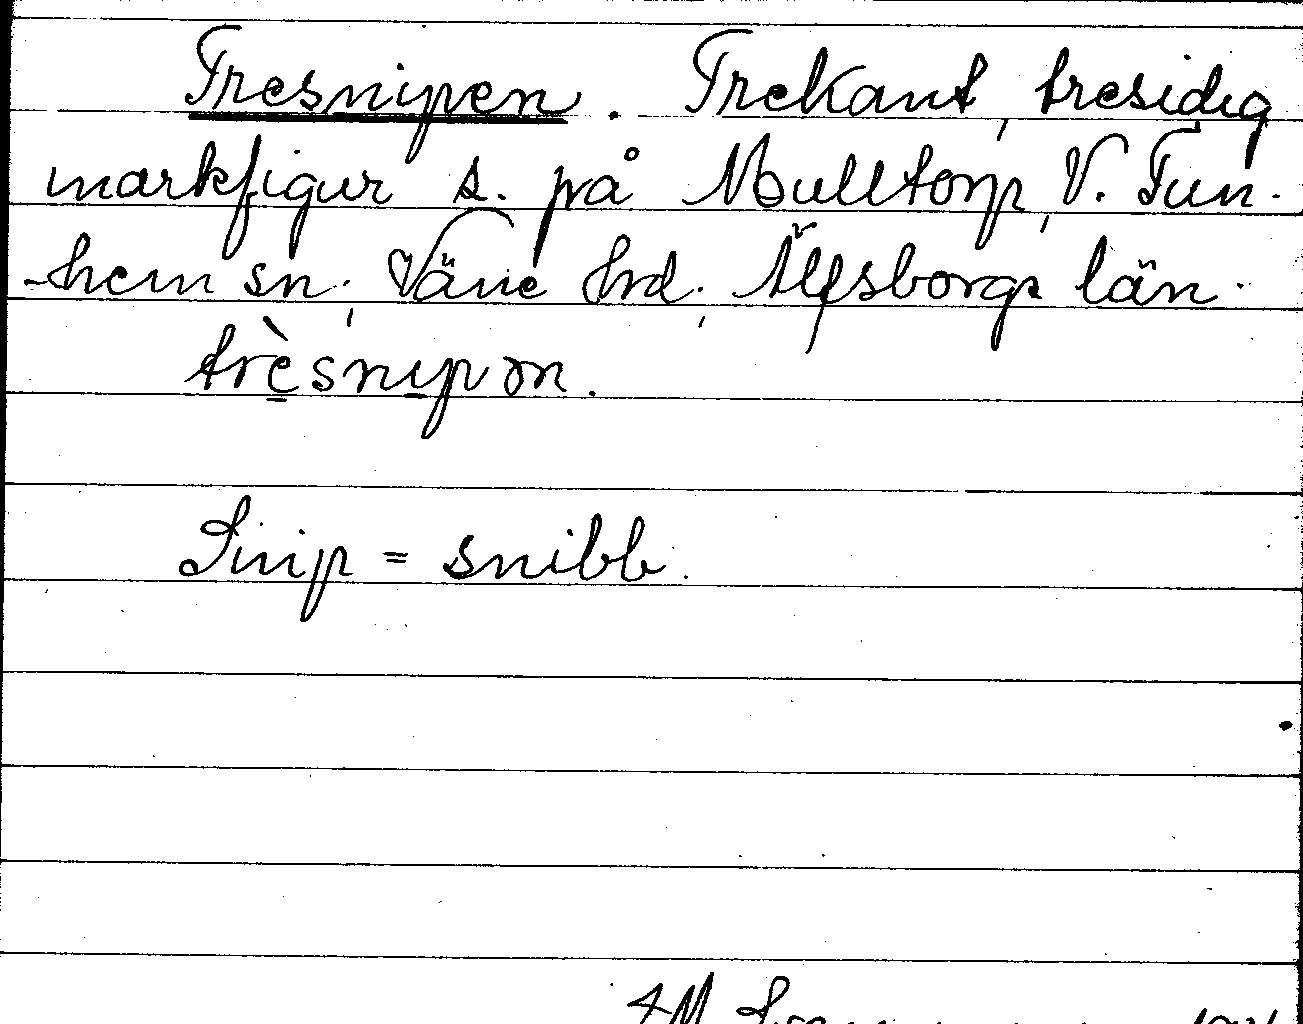 Tresnipen. Trekant, tresidig
markfigur s. på Mulltorp, V. Tun-
-hem sn., Väne hrd., Älfsborgs län.
trèsnipon.
Snip = snibb.